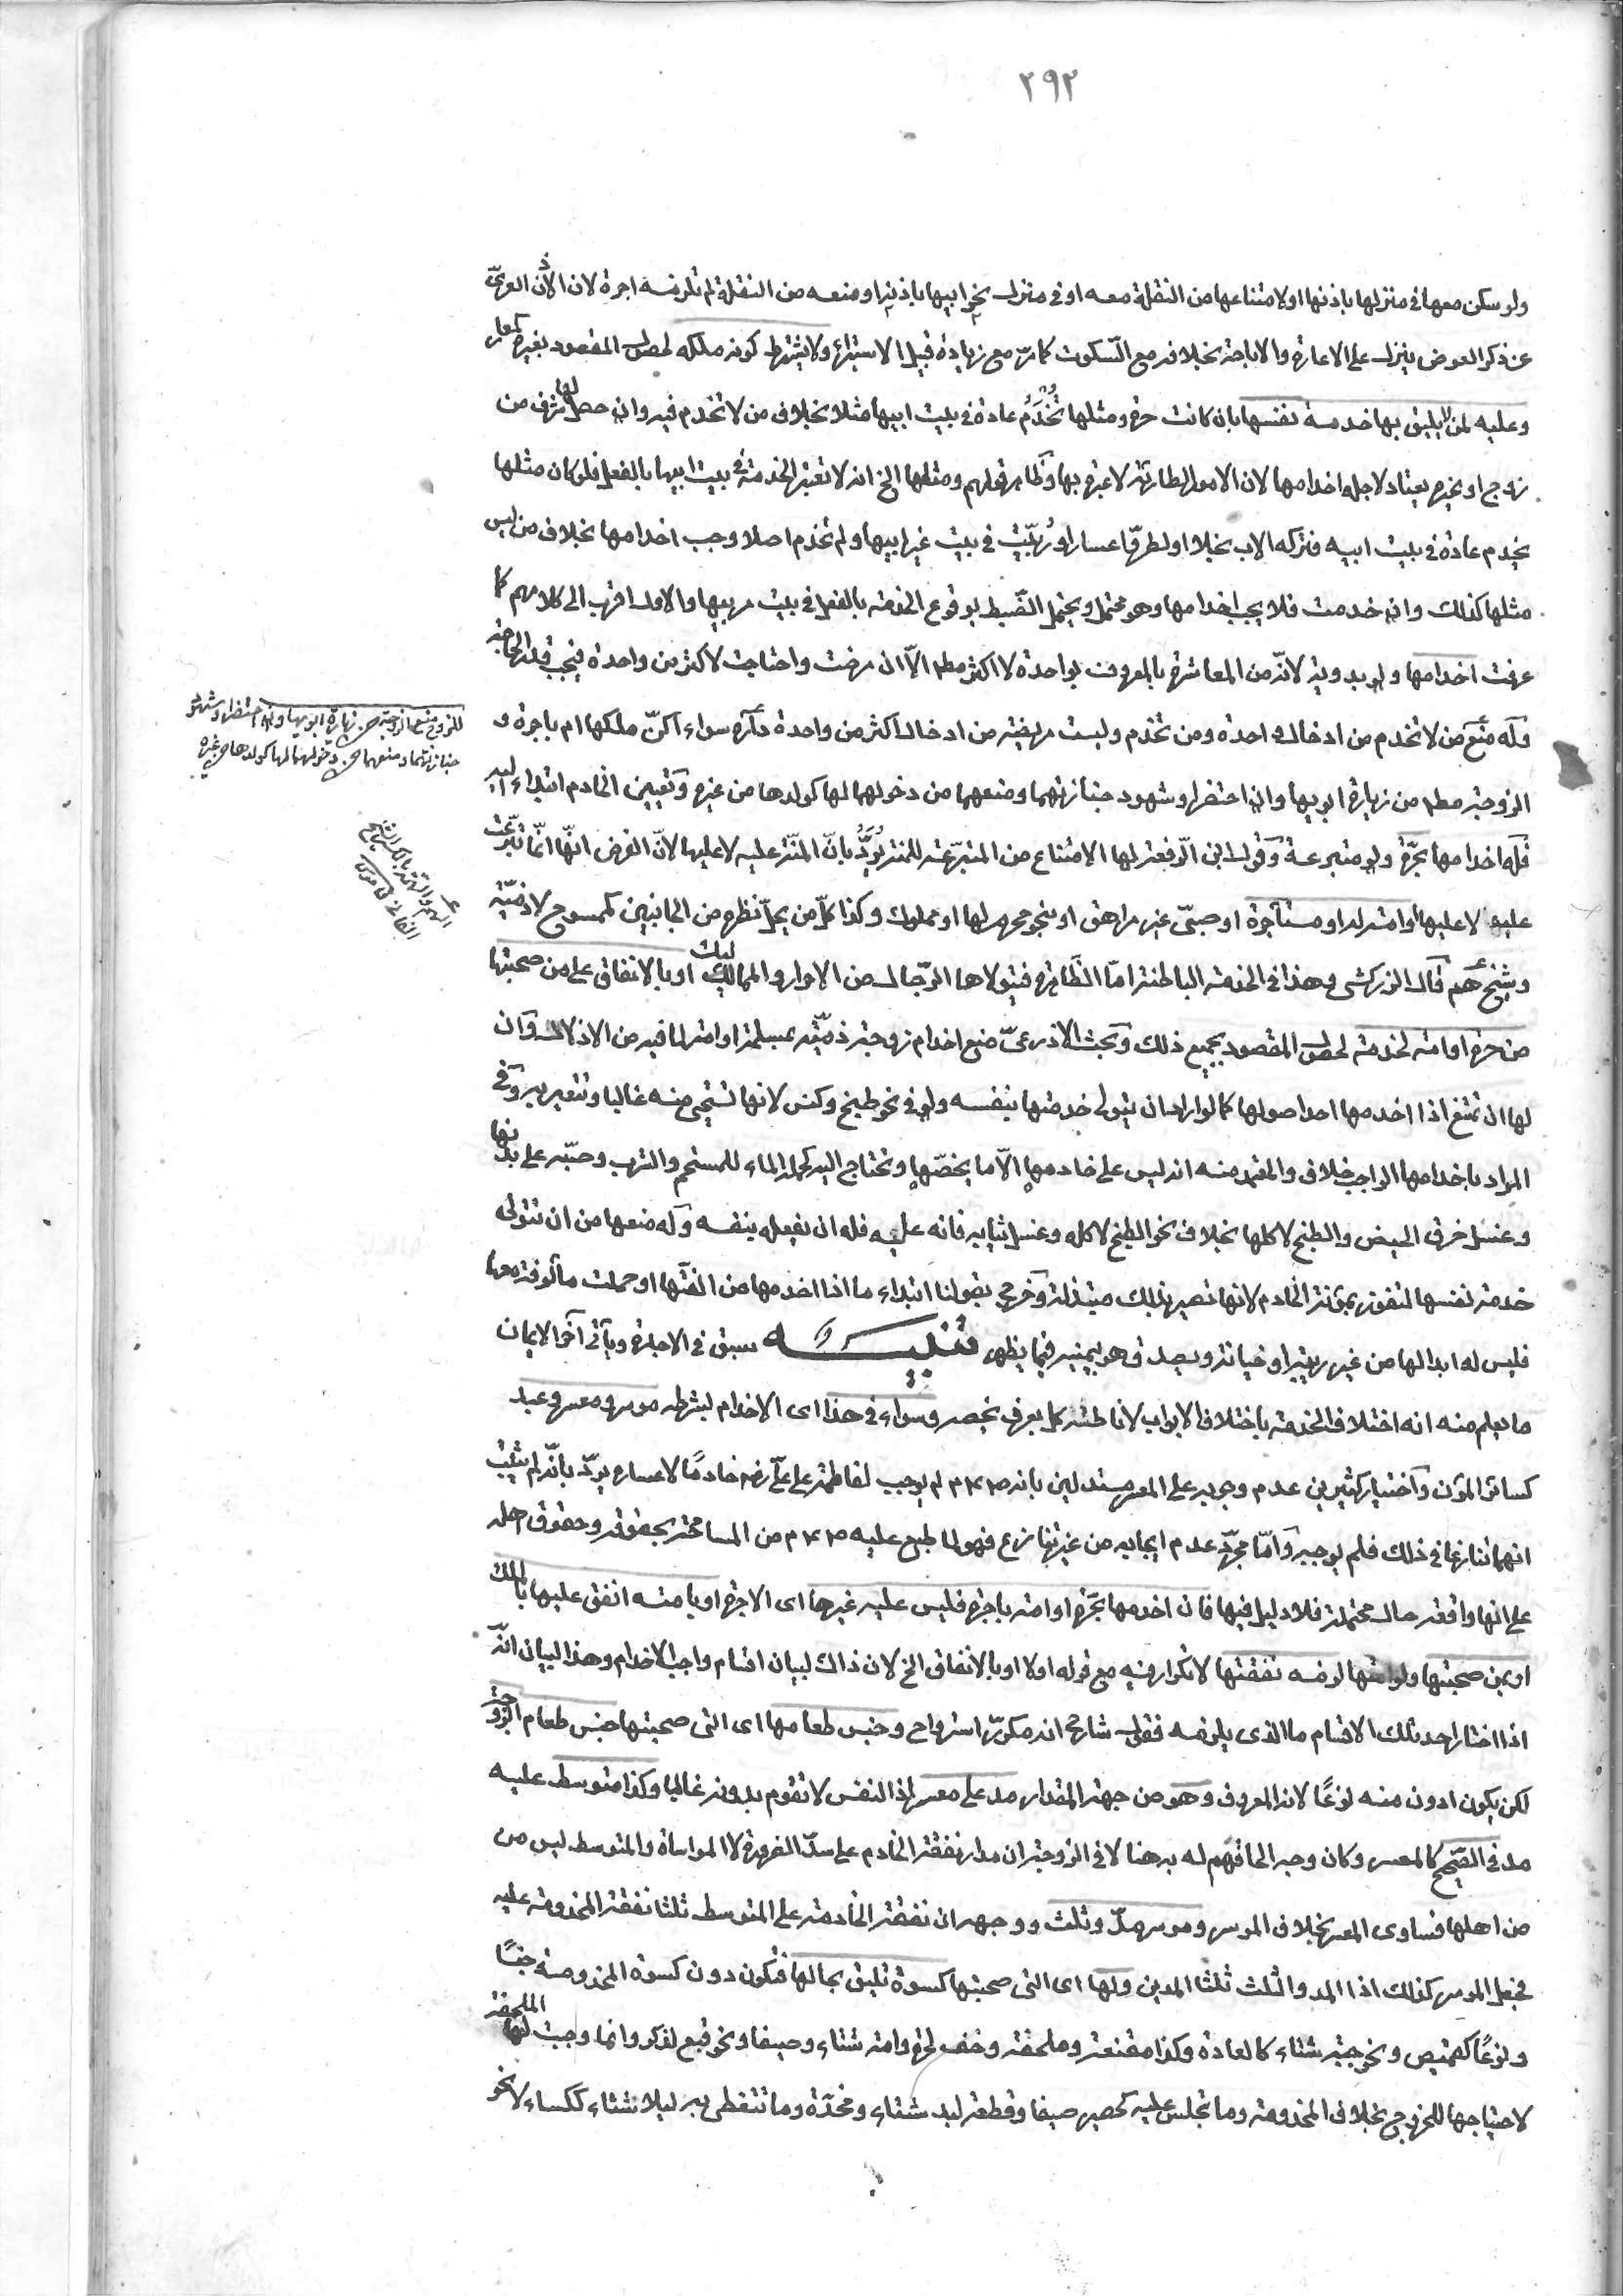 ٢٩٢
ولو سكن معها في منزلها باذنها او لامتناعها من النقلة معه او في منزل نحو ابيها باذنه او منعه من النقلة لم تلزمه اجرة لان الاذن العريّ
عن ذكر العوض ينزل على الاعارة والاباحة بخلافه مع السّكوت كما مرّ مع زيادة قبيل الاستبراء ولا يشترط كونه ملكه لحصول المقصود بغيره كمعار
وعليه لمن لا يليق بها خدمة نفسها بان كانت حرة ومثلها تُخْدَمُ عادة في بيت ابيها مثلا بخلاف من لا تخدم فيه وان حصل لها شرف من
زوج او غيره يعتاد لاجله اخدامها لان الامور الطارئة لا عبرة بها وظاهر قولهم ومثلها الخ انه لا تعتبر الخدمة في بيت ابيها بالفعل فلو كان مثلها
يخدم عادة في بيت ابيه فتركه الاب بخلا او لطروّ اعسار او رُبّيت في بيت غير ابيها ولم تخدم اصلا وجب اخدامها بخلاف من ليس
مثلها كذلك وان خدمت فلا يجب اخدامها وهو محتمل ويحتمل الضّبط بوقوع الخدمة بالفعل في بيت مربيها والاول اقرب الى كلامهم كما
عرفت اخدامها ولو بدوية لانّه من المعاشرة بالمعروف بواحدة لا اكثر مطلقا الّا ان مرضت واحتاجت لاكثر من واحدة فيجب قدر الحاجة
وله منع من لا تخدم من ادخال واحدة ومن تخدم وليست مريضة من ادخال اكثر من واحدة داره سواء اكنّ ملكها ام باجرة و
الزوجة مطلقا من زيارة ابويها وان احتضرا وشهود جنازتهما ومنعهما من دخولهما لها كولدها من غيره وتعيين الخادم ابتداء اليه
فله اخدامها بحرّة ولو متبرعة وقول ابن الرّفعة لها الامتناع من المتبرّعة للمنة يُرَدُّ بانّ المنّة عليه لا عليها لانّ الفرض انهّا انمّا تبرّعت
عليه لا عليها او امة له او مستأجرة او صبيّ غير مراهق او نحو محرم لها او مملوك وكذا كلّ من يحلّ نظره من الجانبين كممسوح لا ذمّيّة
وشيخ هِمّ قال الزركشي وهذا في الخدمة الباطنة امّا الظاهرة فيتولاها الرّجال من الاحرار والمماليك او بالانفاق على من صحبتها
من حرة او امة لخدمة لحصول المقصود بجميع ذلك وبحث الاذرعيّ منع اخدام زوجة ذمّيّة بمسلمة او امة لما فيه من الاذلال وان
لها ان تمتنع اذا اخدمها احد اصولها كما لو اراد ان يتولى خدمتها بنفسه ولو في نحو طبخ وكنس لانها تستحي منه غالبا وتتعير به وفي
المراد باخدامها الواجب خلاف والمعتمد منه انه ليس على خادمها الّا ما يخصّها وتحتاج اليه كحمل الماء للمستحم والشرب وصبّه على بدنها
وغسل خرق الحيض والطبخ لاكلها بخلاف نحو الطبخ لاكله وغسل ثيابه فانه عليه فله ان يفعله بنفسه وله منعها من ان تتولى
خدمة نفسها لتفوز بمؤنة الخادم لانها تصير بذلك مبتذلة وخرج بقولنا ابتداء ما اذا اخدمها من الفتها او حملت مألوفة معها
فليس له ابدالها من غير ريبة او خيانة ويصدق هو بيمينه فيما يظهر تنبيه سبق في الاجارة ويأتي آخر الايمان
ما يعلم منه انه اختلاف الخدمة باختلاف الابواب لاناطته كل بعرف يخصه وسواء في هذا اى الاخدام بشرطه موسر ومعسر وعبد
كسائر المؤن واختيار كثيرين عدم وجوبه على المعسر مستدلين بانه صلعم لم يوجب لفاطمة على عليّ رضه خادمًا لاعساره يردّ بانّه لم يثبت
انهما تنازعا في ذلك فلم يوجبه وامّا مجرّد عدم ايجابه من غير تنازع فهو لما طبع عليه صلعم من المسامحة بحقوقه وحقوق اهله
على انها واقعة حال محتملة فلا دليل فيها فان اخدمها بحرّة او امة باجرة فليس عليه غيرها اى الاجرة او بامته انفق عليها بالملك
او بمن صحبتها ولو امتها لزمه نفقتها لا تكرار فيه مع قوله اولا او بالانفاق الخ لان ذاك لبيان اقسام واجب الاخدام وهذا لبيان انّه
اذا اختار احد تلك الاقسام ما الذي يلزمه فقول شارح انه مكرّر استرواح وجنس طعامها اى التي صحبتها جنس طعام الزوجة
لكن يكون ادون منه نوعًا لانه المعروف وهو من جهة المقدار مد على معسر اذ النفس لا تقوم بدونه غالبا وكذا متوسط عليه
مد في الصّحيح كالمعسر وكان وجه الحاقهم له به هنا لا في الزوجة ان مدار نفقة الخادم على سدّ الضرورة لا المواساة والمتوسط ليس من
من اهلها فساوى المعسر بخلاف الموسر وموسر مدّ وثلث ووجهه ان نفقة الخادمة على المتوسط ثلثا نفقة المخدومة عليه
فجعل الموسر كذلك اذا المد والثلث ثلثا المدين ولها اى التي صحبتها كسوة تليق بحالها فتكون دون كسوة المخدومة جنسًا
ونوعًا كقميص ونحو جبة شتاء كالعادة وكذا مقنعة وملحفة وخف لحرة وامة شتاء وصيفا ونحو قبع لذكر وانما وجبت لها الملحفة
لاحتياجها للخروج بخلاف المخدومة وما تجلس عليه كحصير صيفا وقطعة لبد شتاء ومخدّة وما تتغطى به ليلا شتاء ككساء لا نحو
للزوج منع الزوجة من زيارة ابويها وان احتضرا وشهود
جنازتهما ومنعهما من دخولهما لها كولدها من غيره